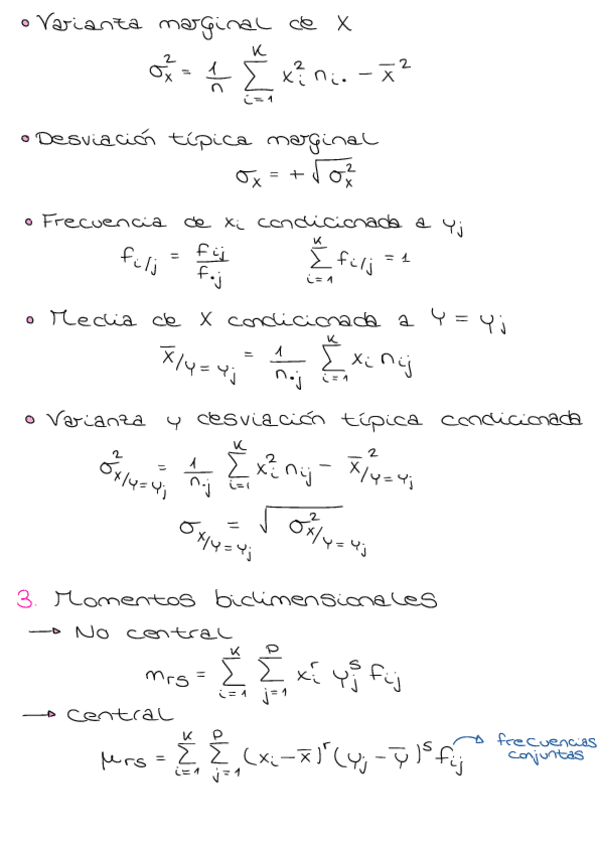 • Varianza marginal de X
σx² = 1/n Σ(i=1..K) xi² ni. - x̄²
• Desviación típica marginal
σx = +√σx²
• Frecuencia de xi condicionada a yj
fi/j = fij/f.j    Σ(i=1..K) fi/j = 1
• Media de X condicionada a Y = yj
x̄/Y=yj = 1/n.j Σ(i=1..K) xi nij
• Varianza y desviación típica condicionada
σ²x/Y=yj = 1/n.j Σ(i=1..K) xi² nij - x̄²/Y=yj
σx/Y=yj = √σ²x/Y=yj
3. Momentos bidimensionales
→ No central
mrs = Σ(i=1..K) Σ(j=1..p) xi^r yj^s fij
→ Central
μrs = Σ(i=1..K) Σ(j=1..p) (xi-x̄)^r (yj-ȳ)^s fij → frecuencias
conjuntas